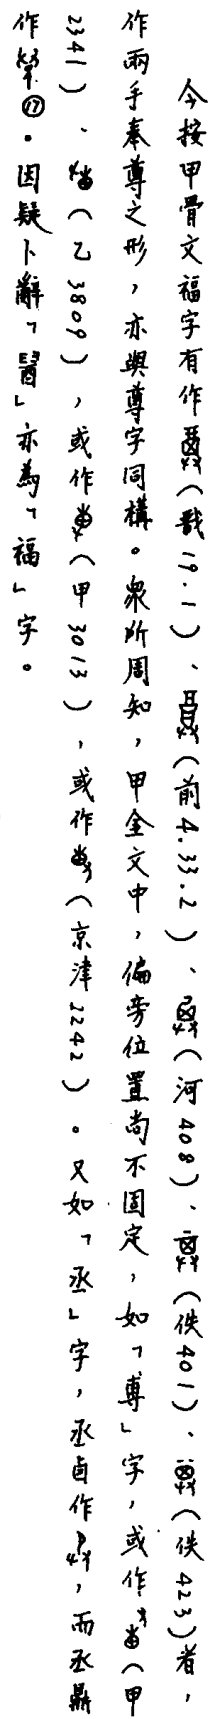 今按甲骨文福字有作（戩19.1）、（前4.33.2）、（河408）、（佚401）、（佚423）者，
作兩手奉尊之形，亦與尊字同構。衆所周知，甲金文中，偏旁位置尚不固定，如「專」字，或作（甲
2341）、（乙3809），或作（甲3013），或作（京津2242）。又如「丞」字，丞卣作，而丞鼎
作⑰。因疑卜辭「」亦為「福」字。